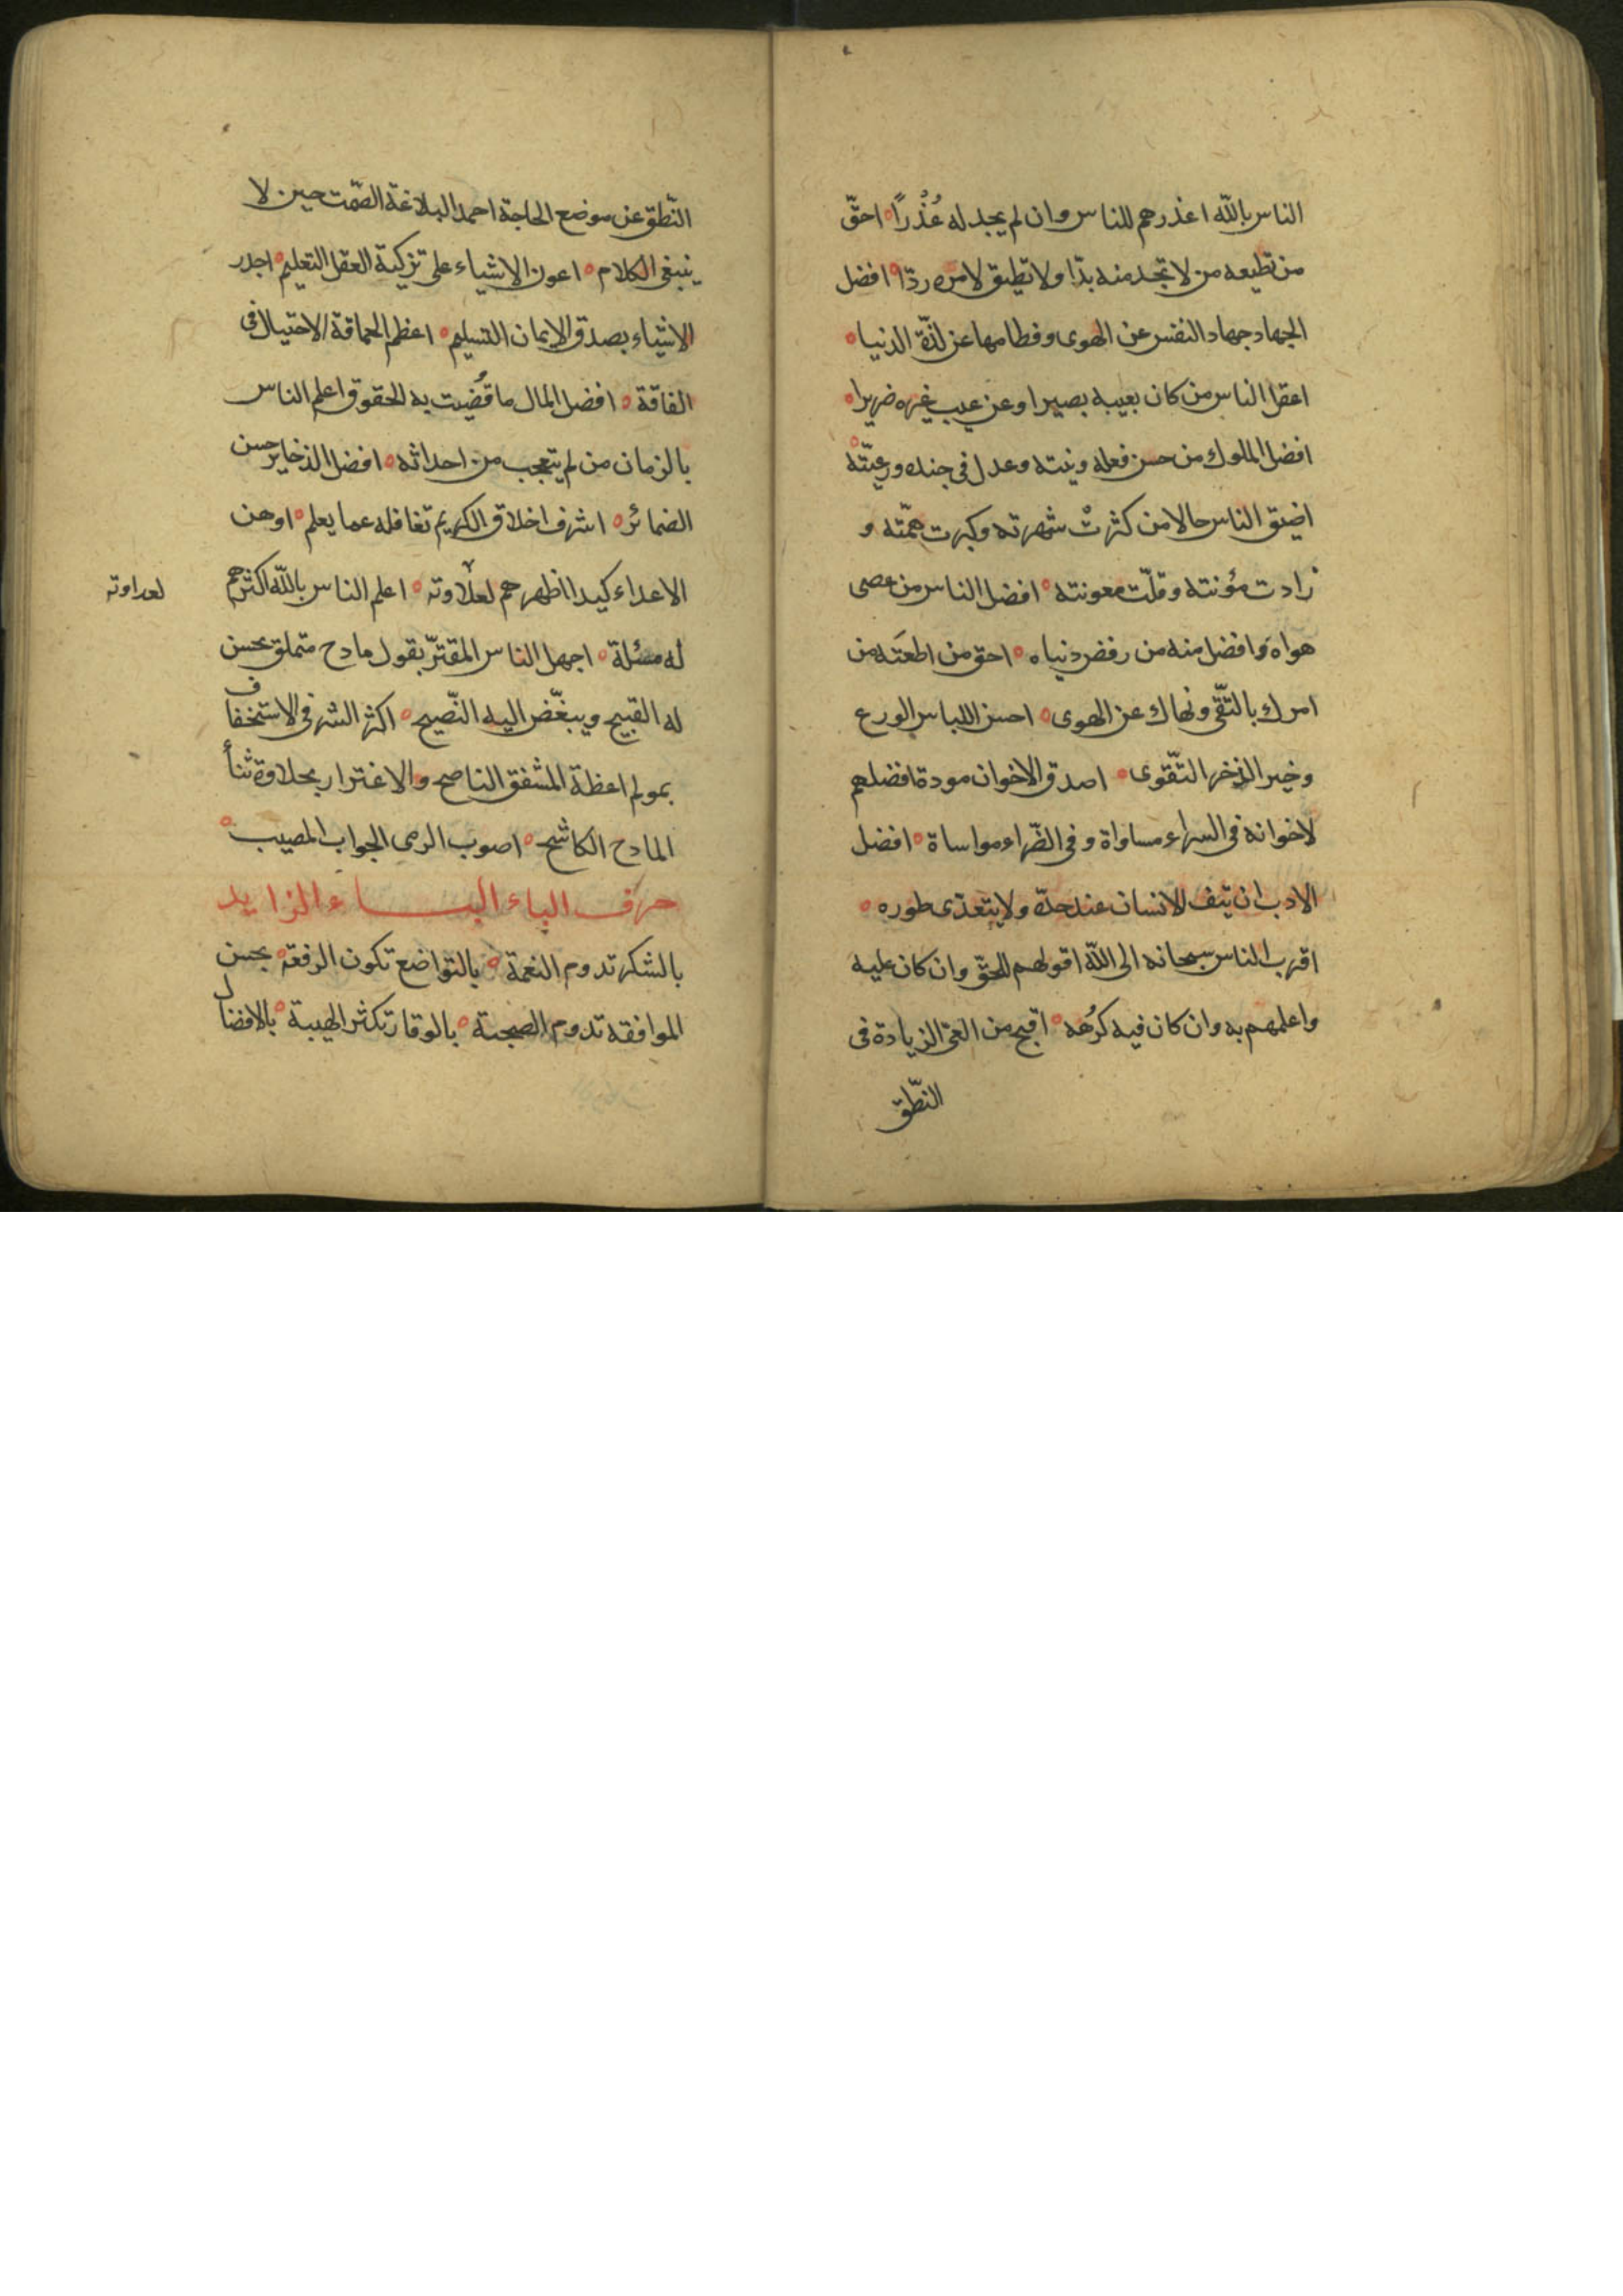 الناس بالله اعذرهم للناس وان لم يجد له عُذْرًا احقّ
من تطيعه من لا تجد منه بدّا ولا تطيق لامره ردّا افضل
الجهاد جهاد النفس عن الهوى وفطامها عن لذّة الدنيا
اعقل الناس من كان بعيبه بصيرا وعن عيب غيره ضريرا
افضل الملوك من حسن فعله ونيته وعدل في جنده ورعيّته
اضيق الناس حالا من كثرتْ شهرته وكبرت همّته و
زادت مؤنته وقلّت معونته افضل الناس من عصى
هواه وافضل منه من رفض دنياه احق من اطعَته من
امرك بالتّقى ونهاك عن الهوى احسن اللباس الورع
وخير الذخر التّقوى اصدق الاخوان مودة افضلهم
لاخوانه في السراء مساواة وفي الضّراء مواساة افضل
الادب ان يقف الانسان عند حدّه ولا يتعدّى طوره
اقرب الناس سبحانه الى الله اقولهم للحقّ وان كان عليه
واعلمهم به وان كان فيه كرُهه اقبح من العىّ الزيادة في
النطّق
النّطق عن موضع الحاجة احمد البلاغة الصّمت حين لا
ينبغي الكلام اعون الاشياء على تزكية العقل التعليم اجدر
الاشياء بصدق الايمان التسليم اعظم الحماقة الاحتيال في
الفاقة افضل المال ما قُضيت به الحقوق اعلم الناس
بالزمان من لم يتعجب من احداثه افضل الذخاير حسن
الضمائر اشرف اخلاق الكريم تغافله عما يعلم اوهن
الاعداء كيدا اظهرهم لعلاوته اعلم الناس بالله اكثرهم
لعداوته
له مسئلة اجهل الناس المقترّ بقول مادح متملق يحسن
له القبيح ويبغّض اليه النّصيح اكثر الشر في الاستخفاف
بمولم اعظة المشفق الناصح والاغترار بحلاوة ثنأ
المادح الكاشح اصوب الرمى الجواب المصيب
حرف الباء البــــاء الزايد
بالشكر تدوم النعمة بالتواضع تكون الرفعة بحسن
الموافقه تدوم الصحبة بالوقار تكثر الهيبة بالافضال